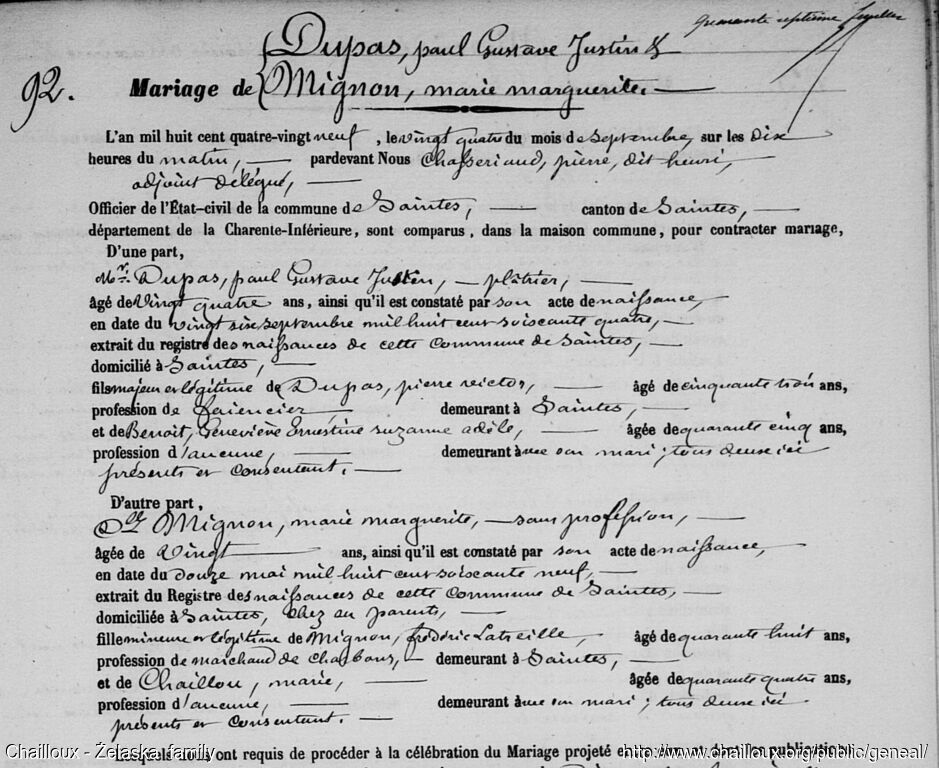 quarante septième feuillet
92.
Dupas, paul Gustave Justin &
Mariage de Mignon, marie marguerite.
L'an mil huit cent quatre-vingt neuf, le vingt quatre du mois de septembre, sur les dix
heures du matin, pardevant Nous Chasseriaud, pierre, dit henri,
adjoint délégué,
Officier de l'État-civil de la commune de Saintes, canton de Saintes,
département de la Charente-Inférieure, sont comparus, dans la maison commune, pour contracter mariage,
D'une part,
Mr. Dupas, paul Gustave Justin, plâtrier,
âgé de Vingt quatre ans, ainsi qu'il est constaté par son acte de naissance,
en date du vingt six septembre mil huit cent soixante quatre,
extrait du registre des naissances de cette Commune de Saintes,
domicilié à Saintes,
fils majeur et légitime de Dupas, pierre victor, âgé de cinquante trois ans,
profession de faïencier, demeurant à Saintes,
et de Benoit, Geneviève Ernestine suzanne adèle, âgée de quarante cinq ans,
profession d'aucune, demeurant avec son mari; tous deux ici
présents et consentant.
D'autre part,
Dlle Mignon, marie marguerite, sans profession,
âgée de Vingt ans, ainsi qu'il est constaté par son acte de naissance,
en date du douze mai mil huit cent soixante neuf,
extrait du Registre des naissances de cette Commune de Saintes,
domiciliée à Saintes, chez ses parents,
fille mineure et légitime de Mignon, frédéric Latreille, âgé de quarante huit ans,
profession de marchand de charbons, demeurant à Saintes,
et de Chaillou, marie, âgée de quarante quatre ans,
profession d'aucune, demeurant avec son mari; tous deux ici
présents et consentant.
Lesquels nous ont requis de procéder à la célébration du Mariage projeté entre eux et dont les publications
Chailloux - Żelaska family
http://www.chailloux.org/public/geneal/